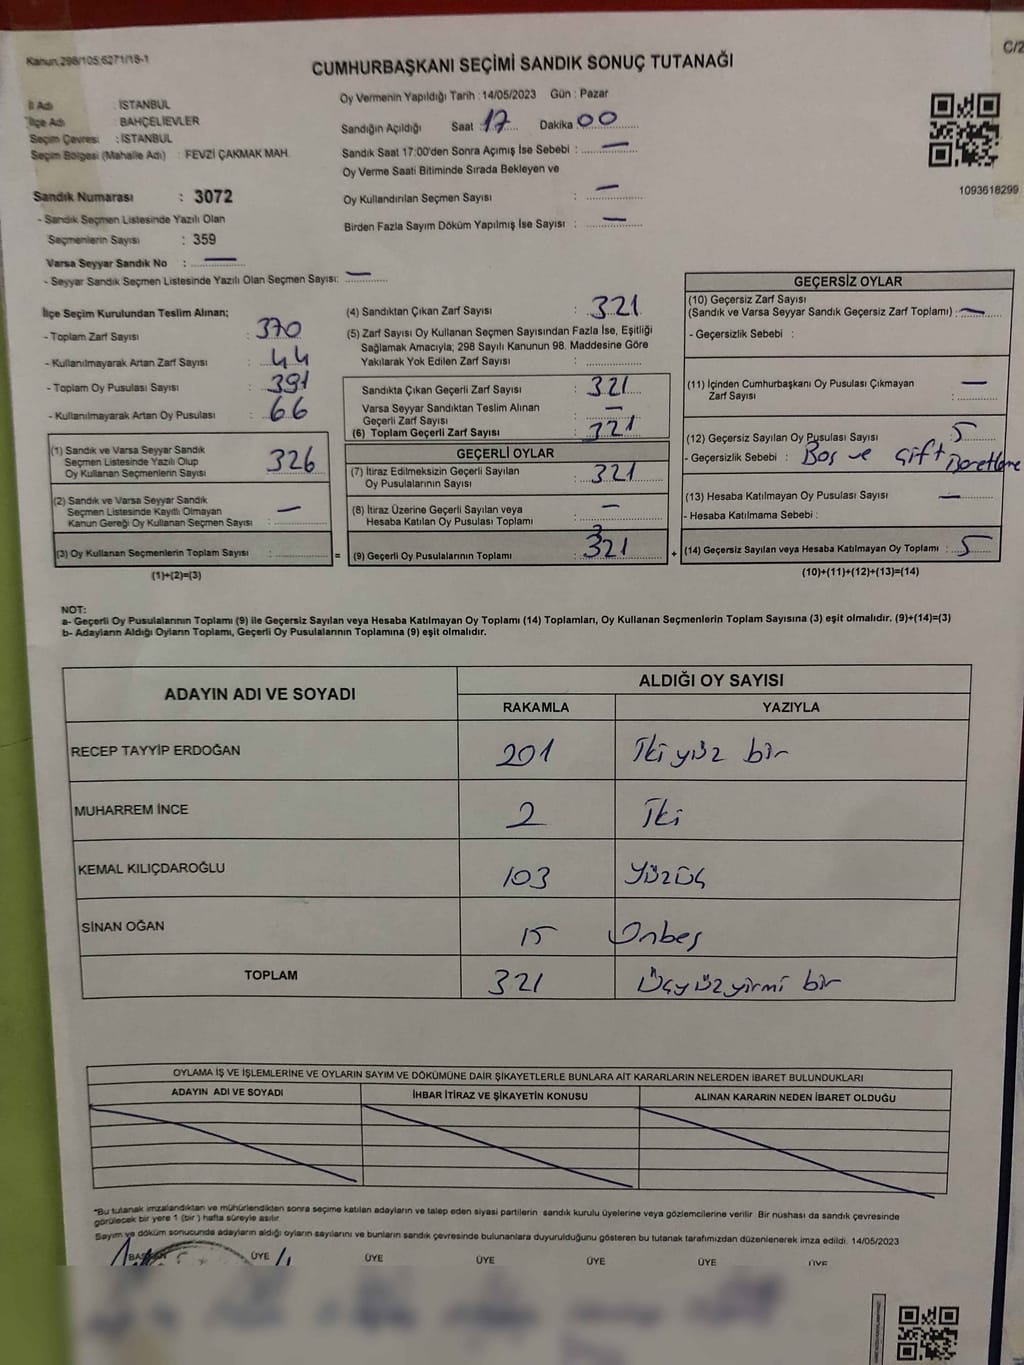 Kanun,298/105;6271/18-1
C/2
CUMHURBAŞKANI SEÇİMİ SANDIK SONUÇ TUTANAĞI
İl Adı : İSTANBUL
İlçe Adı : BAHÇELİEVLER
Seçim Çevresi : İSTANBUL
Seçim Bölgesi (Mahalle Adı) : FEVZİ ÇAKMAK MAH.
Oy Vermenin Yapıldığı Tarih : 14/05/2023 Gün : Pazar
Sandığın Açıldığı Saat 17 Dakika 00
Sandık Saat 17:00'den Sonra Açımış İse Sebebi : —
Oy Verme Saati Bitiminde Sırada Bekleyen ve
Oy Kullandırılan Seçmen Sayısı : —
Birden Fazla Sayım Döküm Yapılmış İse Sayısı : —
1093618299
Sandık Numarası : 3072
- Sandık Seçmen Listesinde Yazılı Olan
Seçmenlerin Sayısı : 359
Varsa Seyyar Sandık No : —
- Seyyar Sandık Seçmen Listesinde Yazılı Olan Seçmen Sayısı: —
İlçe Seçim Kurulundan Teslim Alınan;
- Toplam Zarf Sayısı : 370
- Kullanılmayarak Artan Zarf Sayısı : 44
- Toplam Oy Pusulası Sayısı : 391
- Kullanılmayarak Artan Oy Pusulası : 66
(1) Sandık ve Varsa Seyyar Sandık
Seçmen Listesinde Yazılı Olup
Oy Kullanan Seçmenlerin Sayısı : 326
(2) Sandık ve Varsa Seyyar Sandık
Seçmen Listesinde Kayıtlı Olmayan
Kanun Gereği Oy Kullanan Seçmen Sayısı : —
(3) Oy Kullanan Seçmenlerin Toplam Sayısı :
(1)+(2)=(3)
(4) Sandıktan Çıkan Zarf Sayısı : 321
(5) Zarf Sayısı Oy Kullanan Seçmen Sayısından Fazla İse, Eşitliği
Sağlamak Amacıyla; 298 Sayılı Kanunun 98. Maddesine Göre
Yakılarak Yok Edilen Zarf Sayısı :
Sandıkta Çıkan Geçerli Zarf Sayısı : 321
Varsa Seyyar Sandıktan Teslim Alınan
Geçerli Zarf Sayısı : —
(6) Toplam Geçerli Zarf Sayısı : 321
GEÇERLİ OYLAR
(7) İtiraz Edilmeksizin Geçerli Sayılan
Oy Pusulalarının Sayısı : 321
(8) İtiraz Üzerine Geçerli Sayılan veya
Hesaba Katılan Oy Pusulası Toplamı : —
= (9) Geçerli Oy Pusulalarının Toplamı : 321
GEÇERSİZ OYLAR
(10) Geçersiz Zarf Sayısı
(Sandık ve Varsa Seyyar Sandık Geçersiz Zarf Toplamı) : —
- Geçersizlik Sebebi :
(11) İçinden Cumhurbaşkanı Oy Pusulası Çıkmayan
Zarf Sayısı : —
(12) Geçersiz Sayılan Oy Pusulası Sayısı : 5
- Geçersizlik Sebebi : Boş ve Çift
(13) Hesaba Katılmayan Oy Pusulası Sayısı : —
- Hesaba Katılmama Sebebi :
+ (14) Geçersiz Sayılan veya Hesaba Katılmayan Oy Toplamı : 5
(10)+(11)+(12)+(13)=(14)
NOT:
a- Geçerli Oy Pusulalarının Toplamı (9) ile Geçersiz Sayılan veya Hesaba Katılmayan Oy Toplamı (14) Toplamları, Oy Kullanan Seçmenlerin Toplam Sayısına (3) eşit olmalıdır. (9)+(14)=(3)
b- Adayların Aldığı Oyların Toplamı, Geçerli Oy Pusulalarının Toplamına (9) eşit olmalıdır.
ADAYIN ADI VE SOYADI ALDIĞI OY SAYISI
RAKAMLA YAZIYLA
RECEP TAYYİP ERDOĞAN 201 İki yüz bir
MUHARREM İNCE 2 İki
KEMAL KILIÇDAROĞLU 103 Yüzüç
SİNAN OĞAN 15 Onbeş
TOPLAM 321 Üçyüzyirmi bir
OYLAMA İŞ VE İŞLEMLERİNE VE OYLARIN SAYIM VE DÖKÜMÜNE DAİR ŞİKAYETLERLE BUNLARA AİT KARARLARIN NELERDEN İBARET BULUNDUKLARI
ADAYIN ADI VE SOYADI İHBAR İTİRAZ VE ŞİKAYETİN KONUSU ALINAN KARARIN NEDEN İBARET OLDUĞU
"Bu tutanak imzalandıktan ve mühürlendikten sonra seçime katılan adayların ve talep eden siyasi partilerin sandık kurulu üyelerine veya gözlemcilerine verilir. Bir nüshası da sandık çevresinde
görülecek bir yere 1 (bir) hafta süreyle asılır.
Sayım ve döküm sonucunda adayların aldığı oyların sayılarını ve bunların sandık çevresinde bulunanlara duyurulduğunu gösteren bu tutanak tarafımızdan düzenlenerek imza edildi. 14/05/2023
BAŞKAN ÜYE ÜYE ÜYE ÜYE ÜYE ÜYE